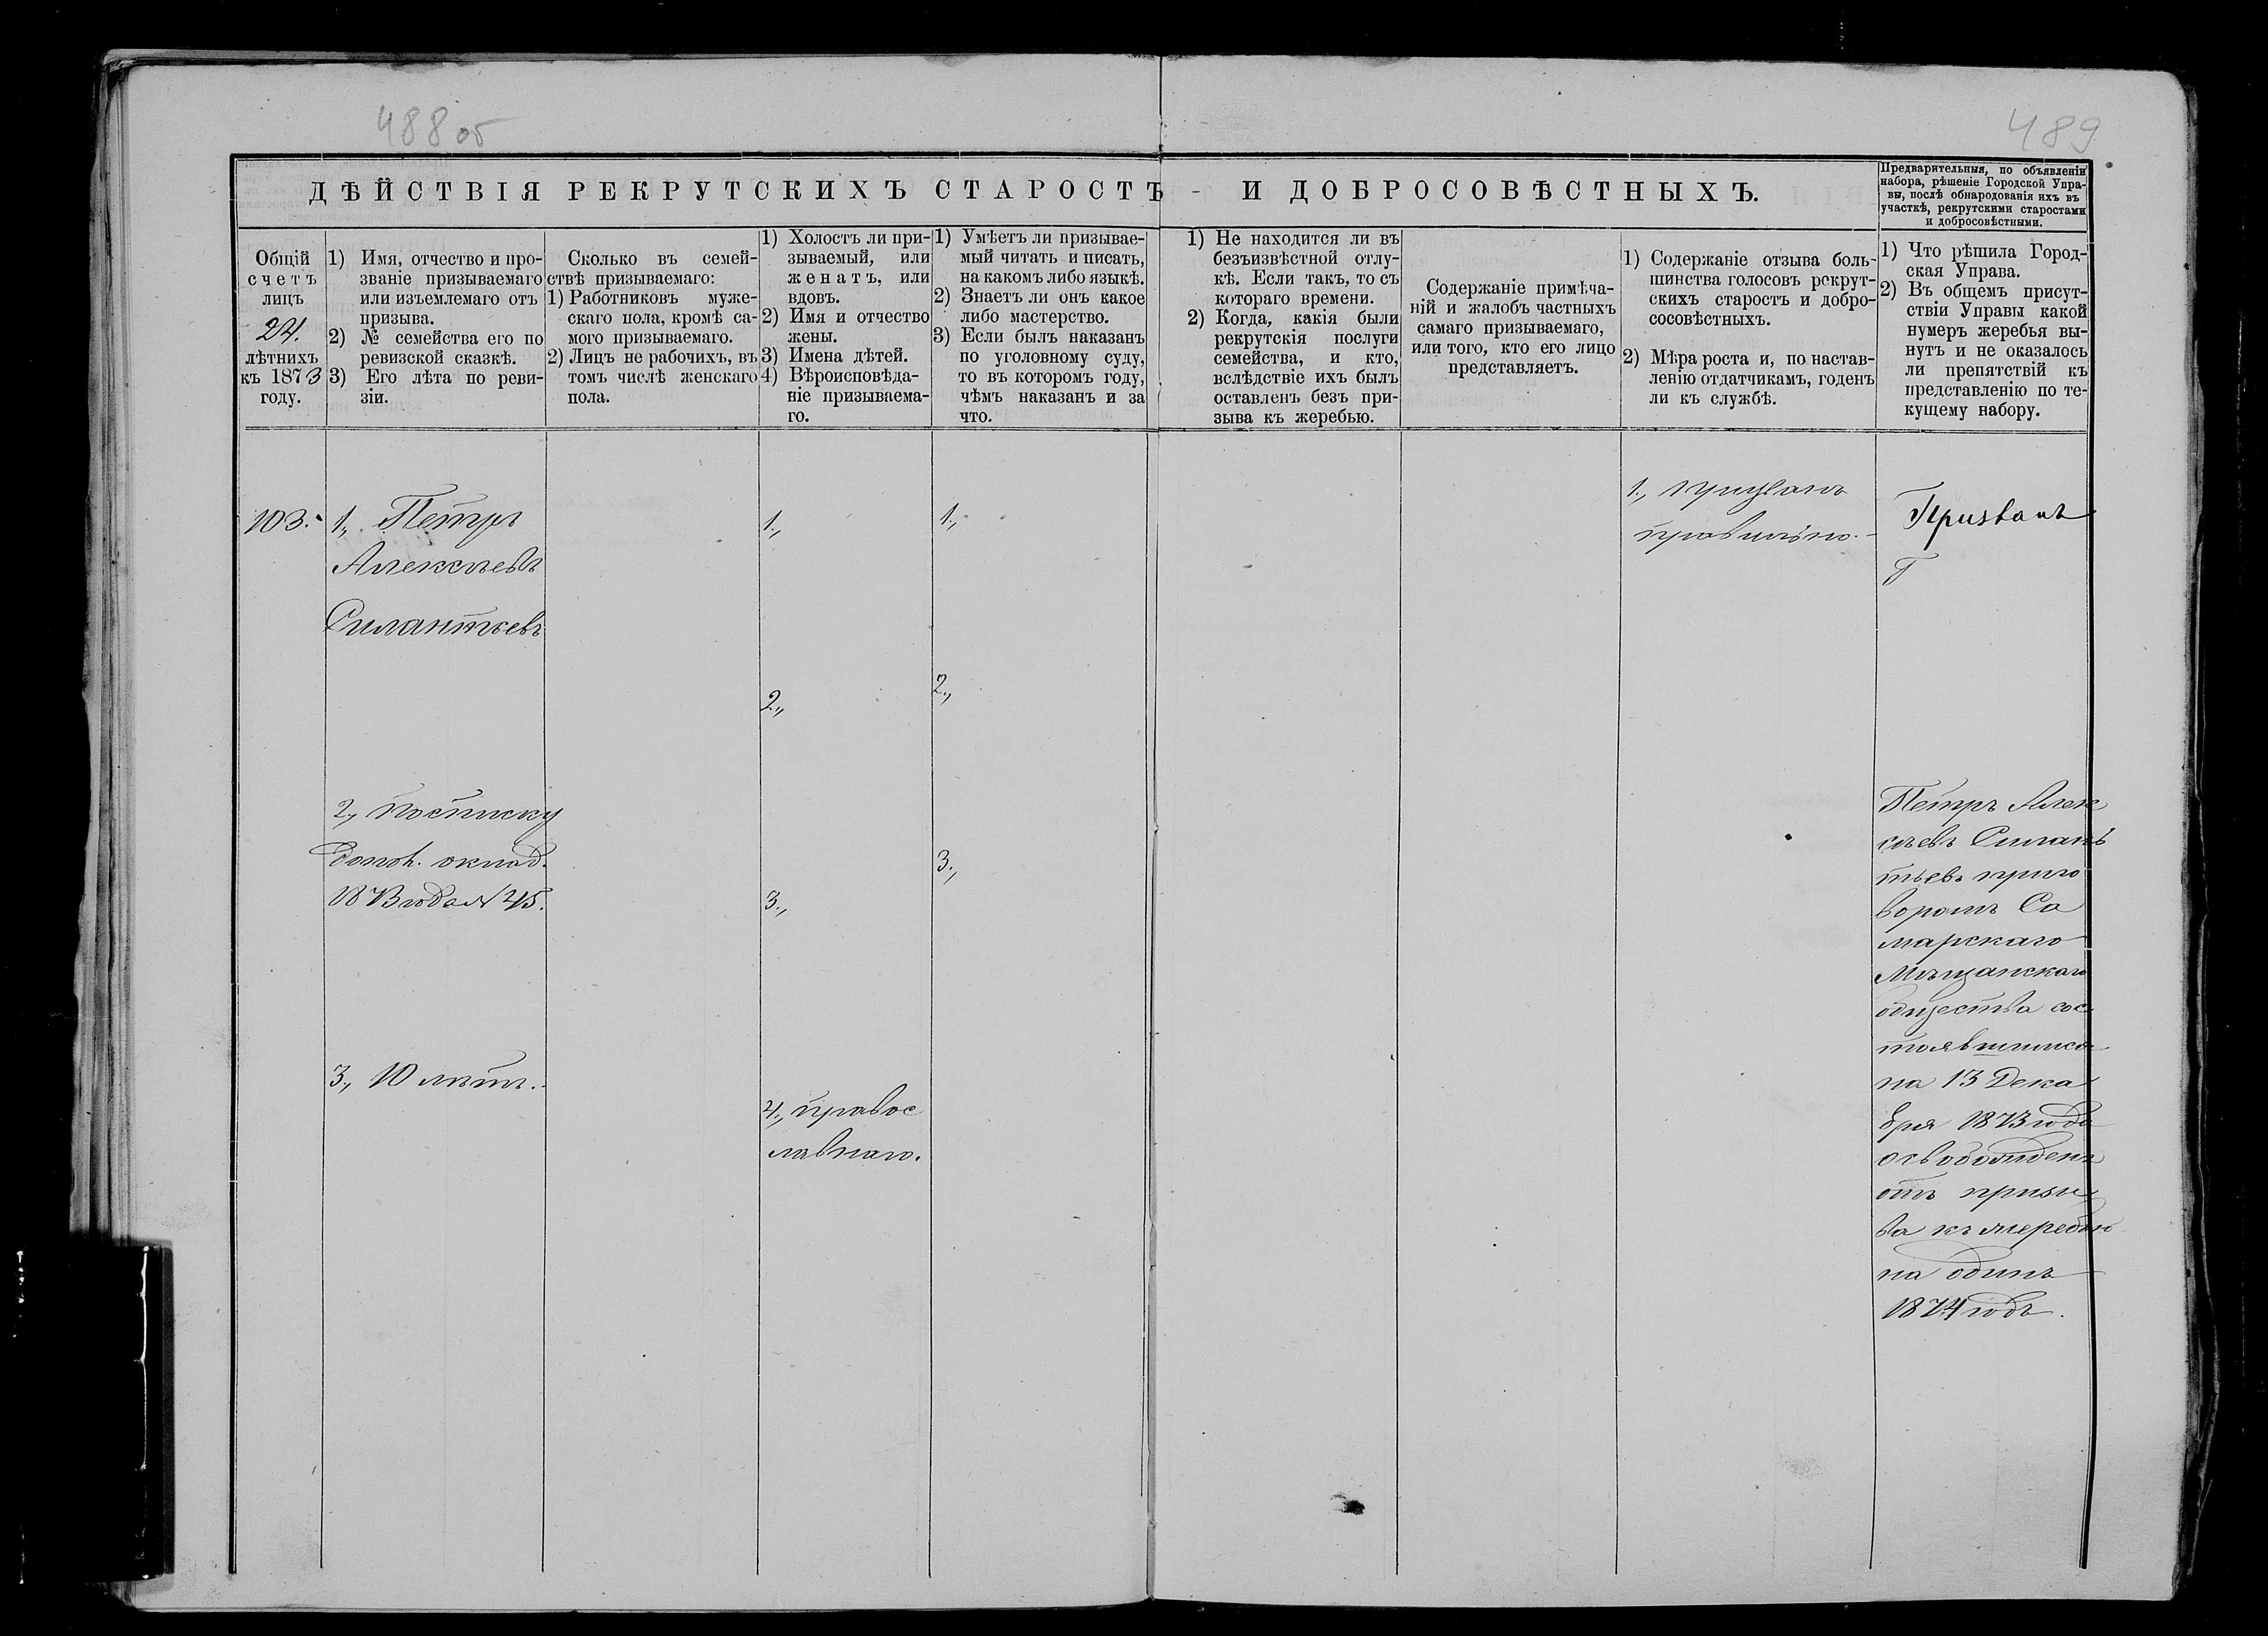 488 об
489
ДѢЙСТВІЯ РЕКРУТСКИХЪ СТАРОСТЪ - И ДОБРОСОВѢСТНЫХЪ.
Предварительныя, по объявленіи
набора, рѣшеніе Городской Упра-
вы, послѣ обнародованія ихъ въ
участкѣ, рекрутскими старостами
и добросовѣстными.
Общій
счетъ
лицъ
24.
лѣтнихъ
къ 1873
году.
1) Имя, отчество и про-
званіе призываемаго
или изъемлемаго отъ
призыва.
2) № семейства его по
ревизской сказкѣ.
3) Его лѣта по реви-
зіи.
Сколько въ семей-
ствѣ призываемаго:
1) Работниковъ муже-
скаго пола, кромѣ са-
мого призываемаго.
2) Лицъ не рабочихъ, въ
томъ числѣ женскаго
пола.
1) Холостъ ли при-
зываемый, или
женатъ, или
вдовъ.
2) Имя и отчество
жены.
3) Имена дѣтей.
4) Вѣроисповѣда-
ніе призываема-
го.
1) Умѣетъ ли призывае-
мый читать и писать,
на какомъ либо языкѣ.
2) Знаетъ ли онъ какое
либо мастерство.
3) Если былъ наказанъ
по уголовному суду,
то въ которомъ году,
чѣмъ наказанъ и за
что.
1) Не находится ли въ
безъизвѣстной отлу-
кѣ. Если такъ, то съ
котораго времени.
2) Когда, какія были
рекрутскія послуги
семейства, и кто,
вслѣдствіе ихъ былъ
оставленъ безъ при-
зыва къ жеребью.
Содержаніе примѣча-
ній и жалобъ частныхъ
самаго призываемаго,
или того, кто его лицо
представляетъ.
1) Содержаніе отзыва боль-
шинства голосовъ рекрут-
скихъ старостъ и добро-
совѣстныхъ.
2) Мѣра роста и, по настав-
ленію отдатчикамъ, годенъ
ли къ службѣ.
1) Что рѣшила Город-
ская Управа.
2) Въ общемъ присут-
ствіи Управы какой
нумеръ жеребья вы-
нутъ и не оказалось
ли препятствій къ
представленію по те-
кущему набору.
103.
1., Петръ
Алексѣевъ
Силантьевъ
2., по списку
допол. оклад.
1873 года № 45.
3., 10 лѣтъ.
1.,
2.,
3.,
4., правос
лавнаго.
1.,
2.,
3.,
1., призванъ
правильно.
Призванъ
Петръ Алек
сѣевъ Силанъ
тьевъ приго
воромъ Са
марскаго
Мѣщанскаго
общества сос
тоявшимся
на 13 Дека
бря 1873 года
освобожденъ
отъ призы
ва къ жеребью
на одинъ
1874 годъ.